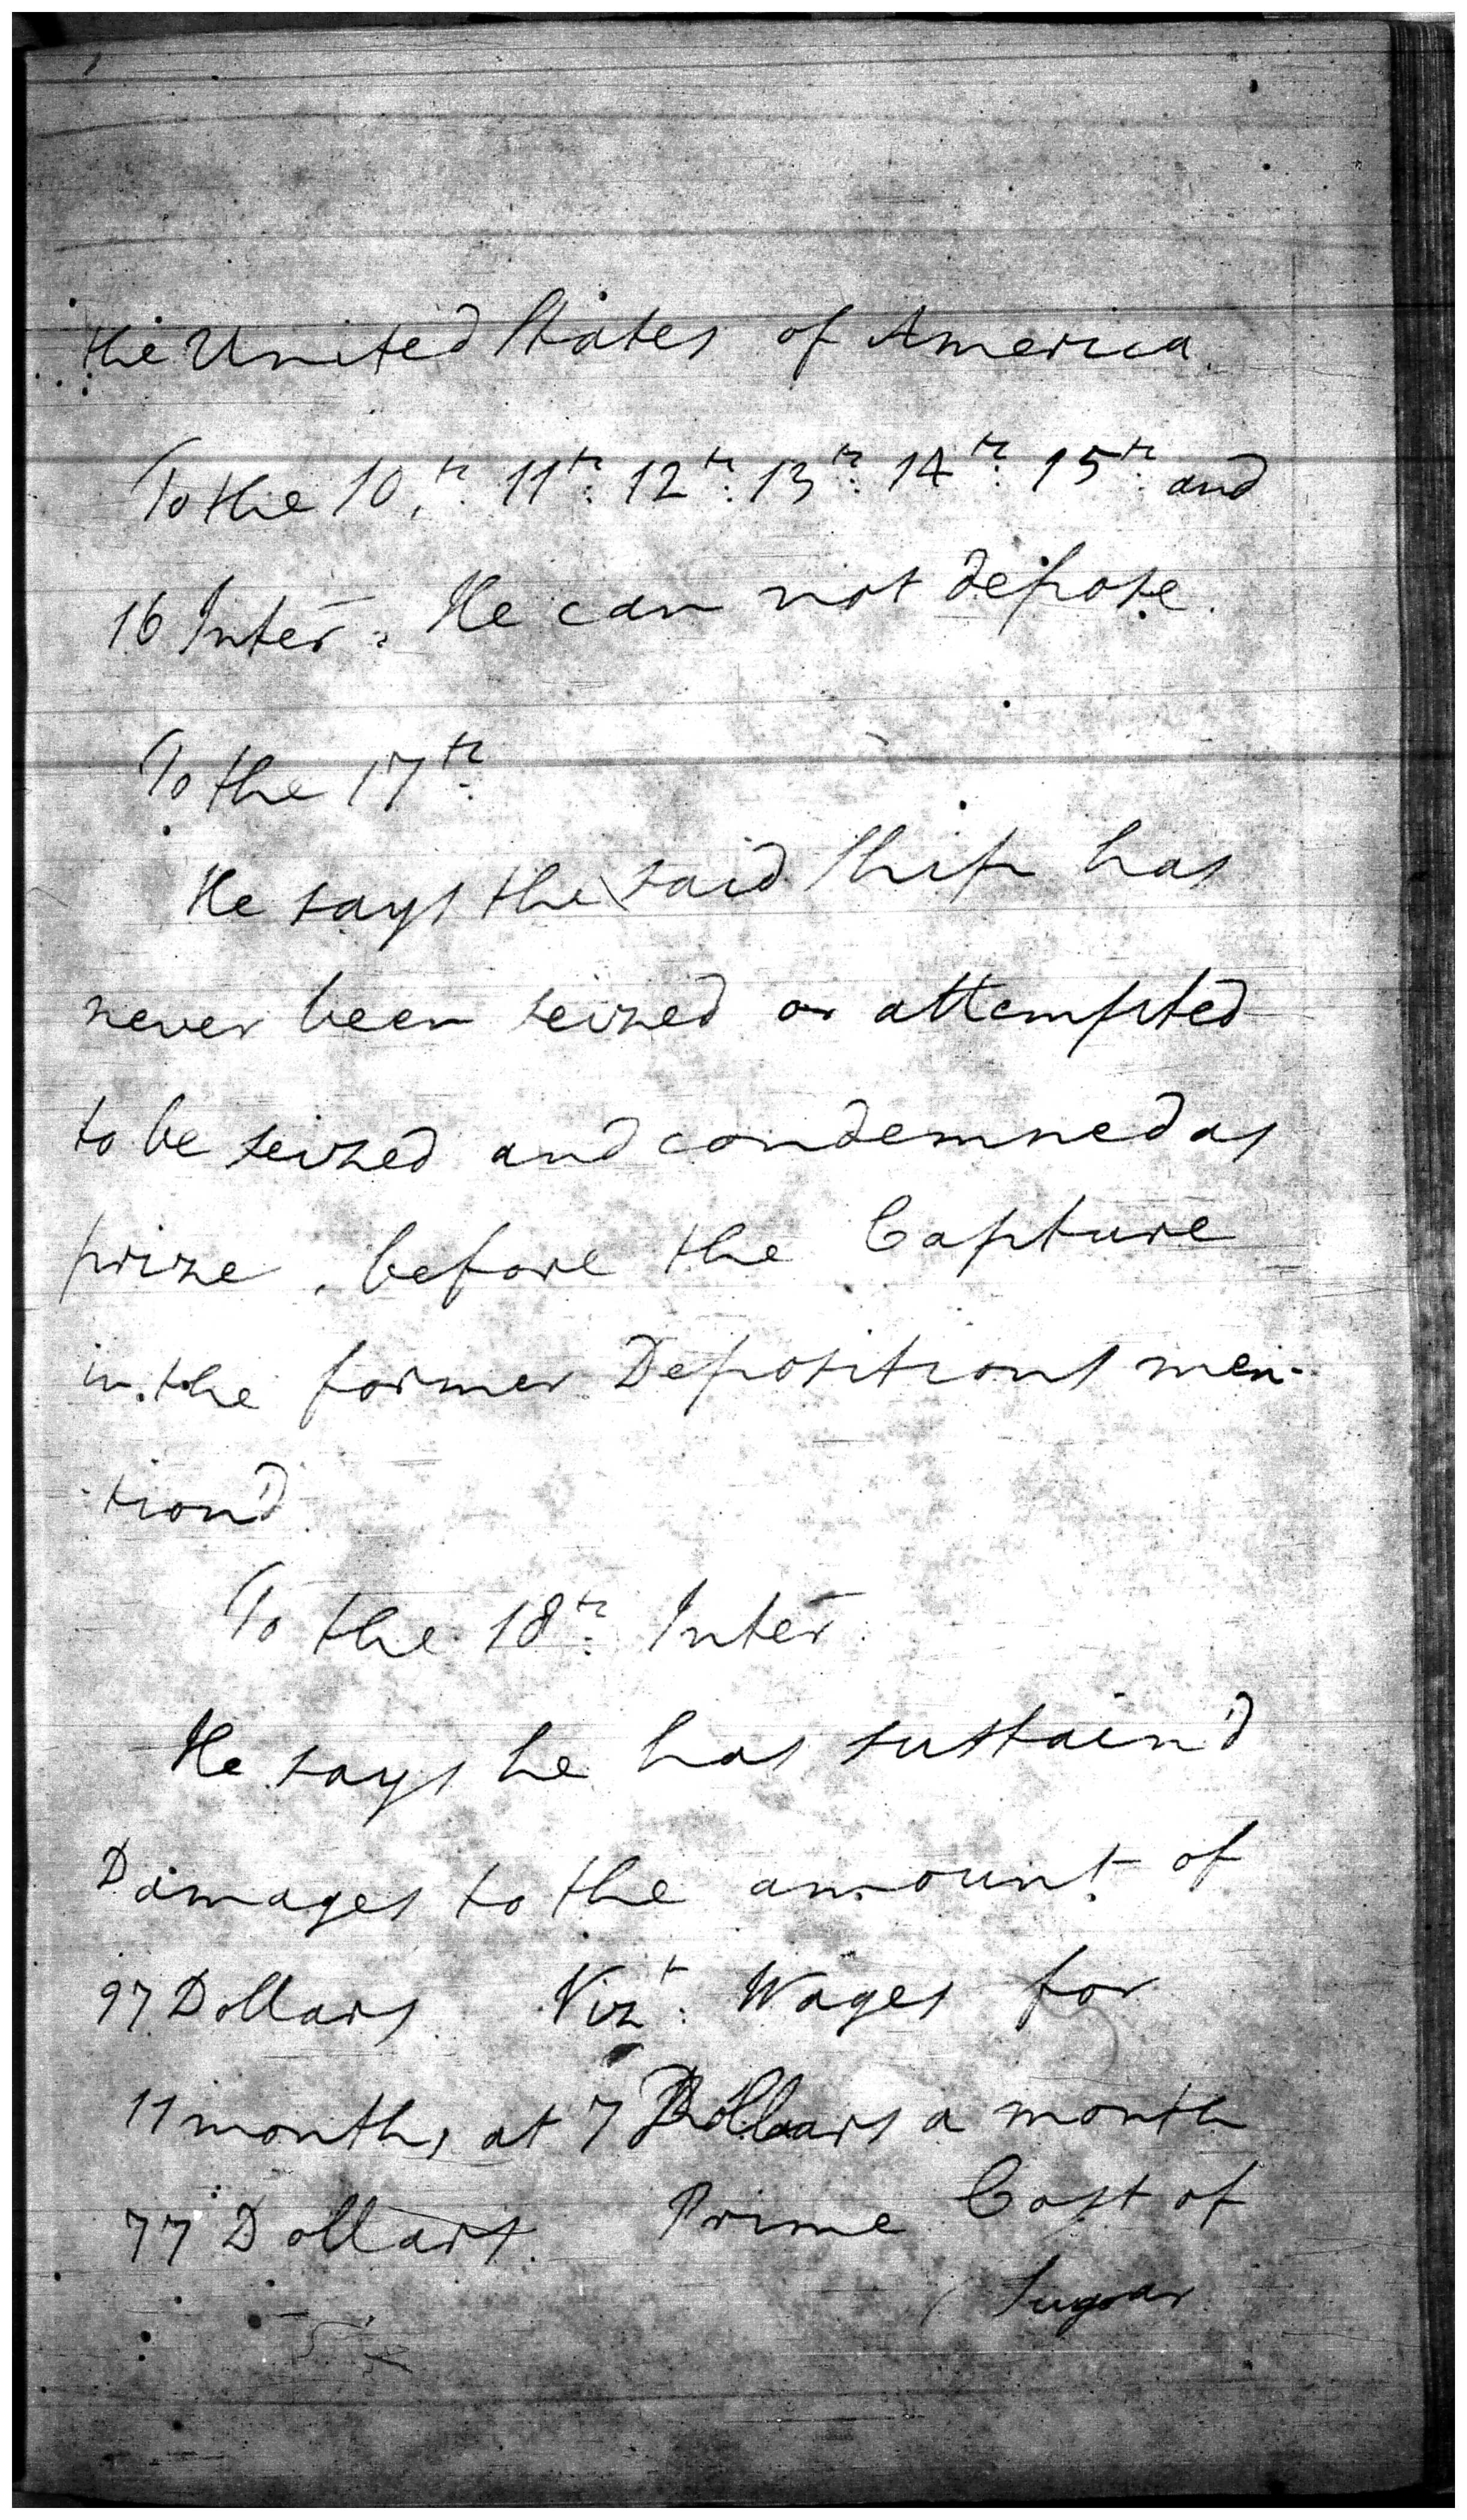 the United States of America.
To the 10.th 11th 12th 13th 14th 15th and
16 Inter: He can not depose.
To the 17th
He says the said Ship has
never been seized or attempted
to be seized and condemned as
prize, before the Capture
in the former Depositions men-
-tion'd.
To the 18th Inter.
He says he has sustain'd
Damages to the amount of
97 Dollars. Vizt: Wages for
11 months at 7 Dollars a month
77 Dollars. Prime Cost of
Sugar